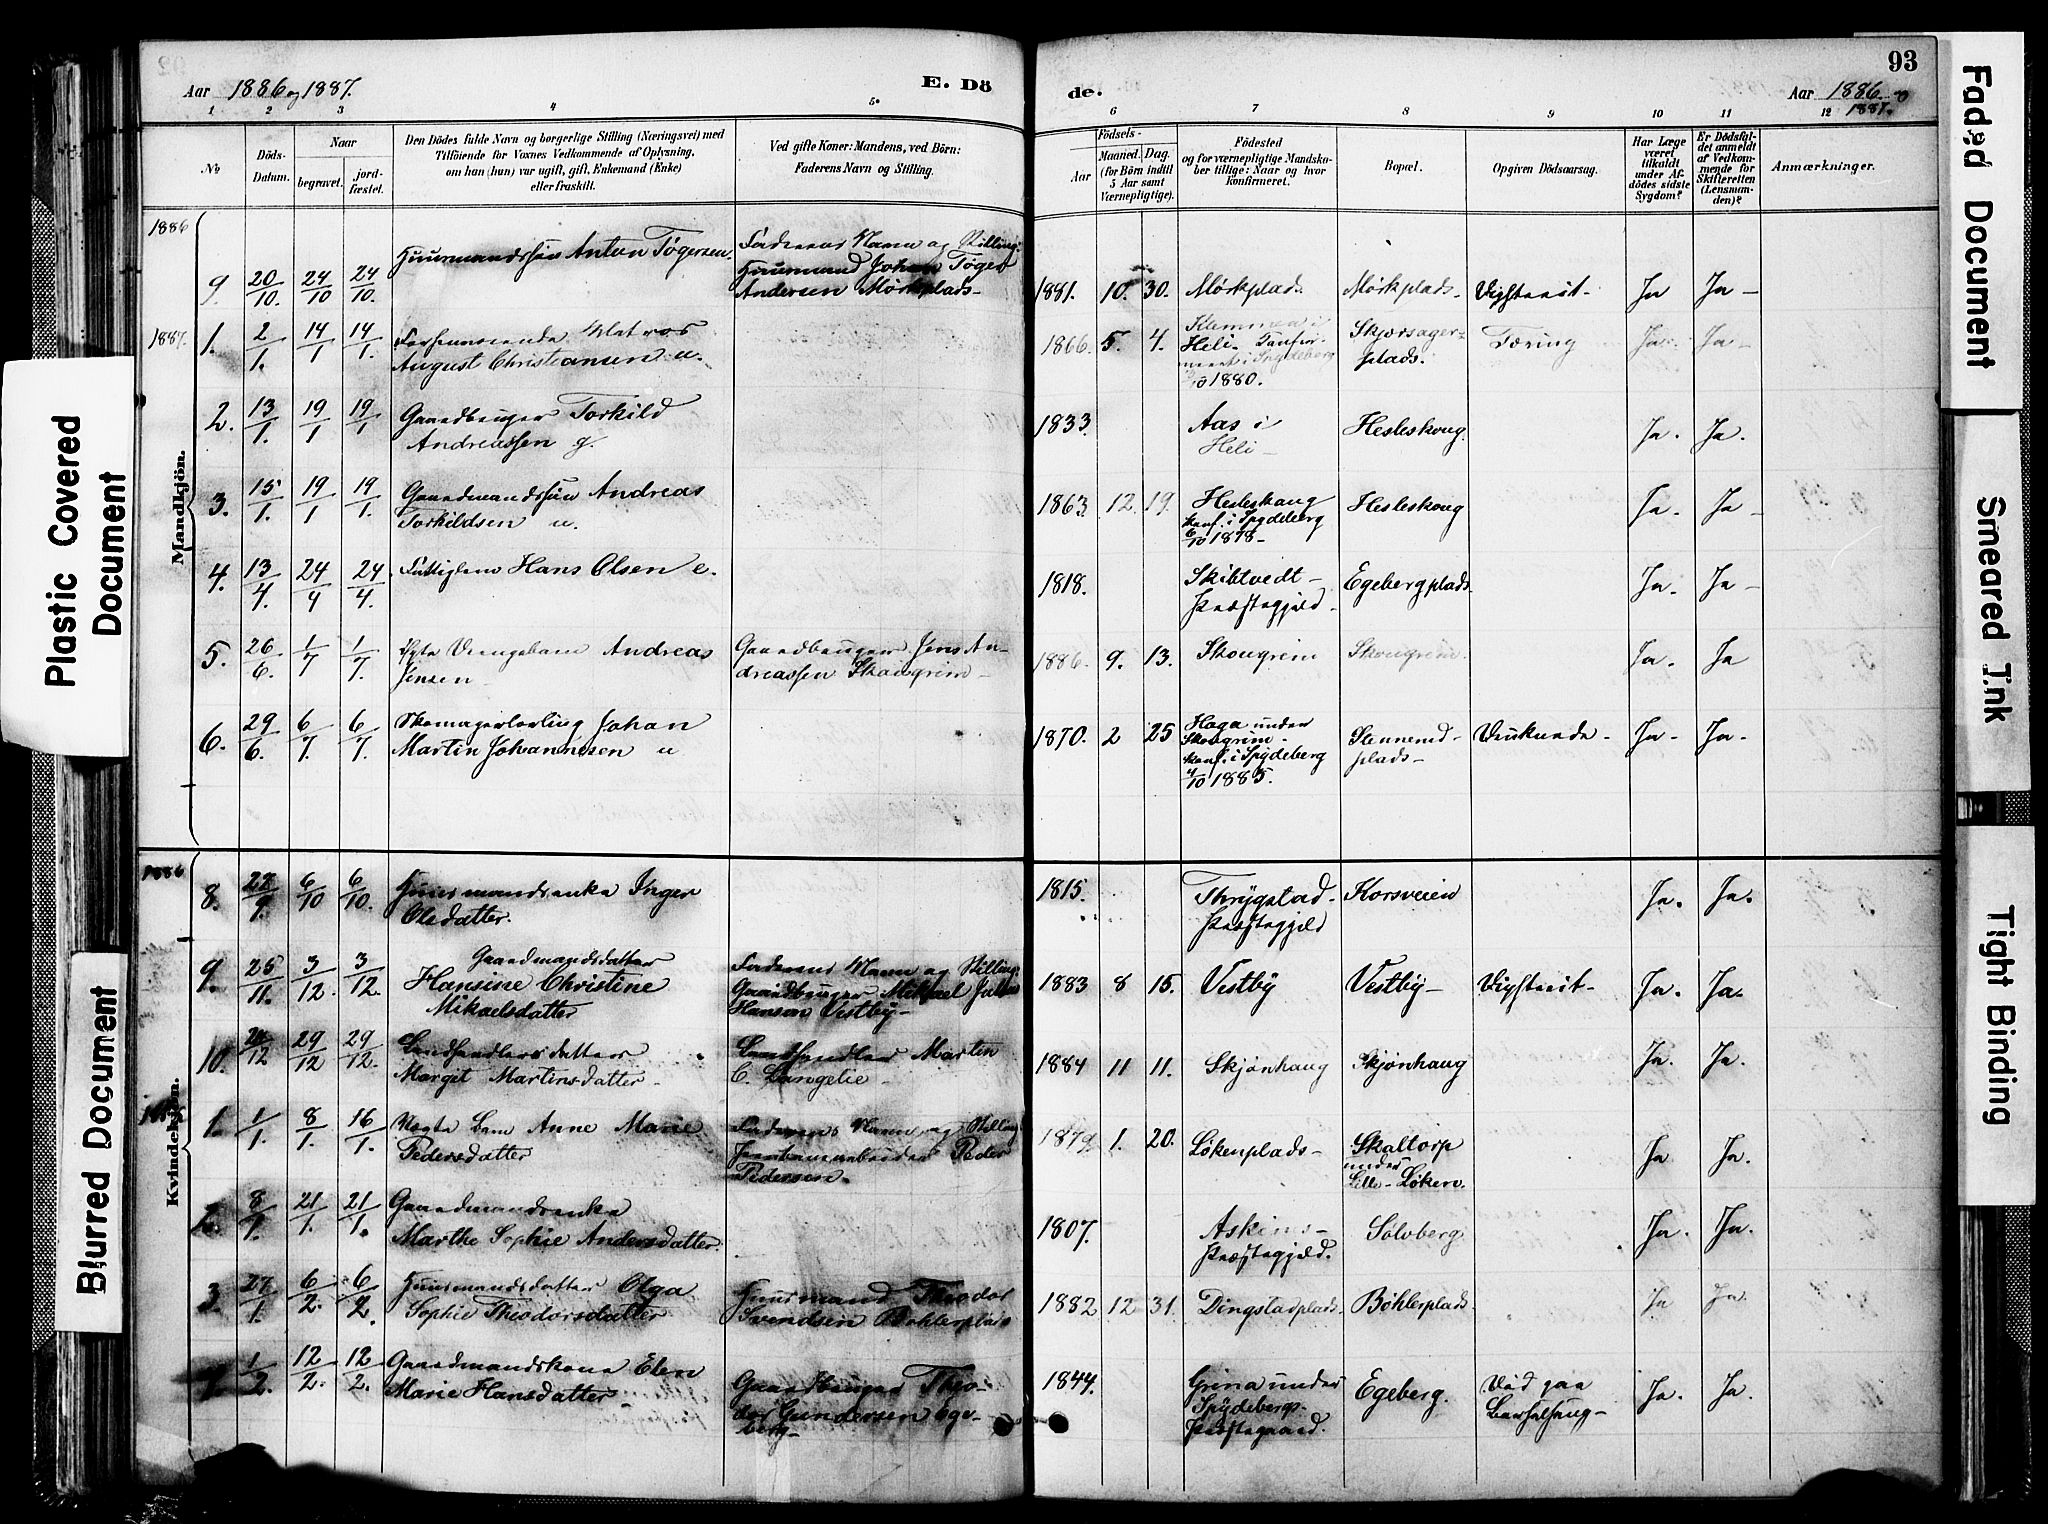 Plastic Covered Document
Blurred Document
Faded Document
Smeared Ink
Tight Binding
93
Aar 1886 og 1887.
E. Dö
de.
Aar 1886 og 1887.
1 2 3 4 5 6 7 8 9 10 11 12
No
Döds-Datum.
Naar
begravet.
jordfæstet.
Den Dödes fulde Navn og borgerlige Stilling (Næringsvei) med
Tilföiende for Voxnes Vedkommende af Oplysning,
om han (hun) var ugift, gift, Enkemand (Enke)
eller fraskilt.
Ved gifte Koner: Mandens, ved Börn:
Faderens Navn og Stilling.
Födsels-
Aar
Maaned. Dag.
(for Börn indtil
5 Aar samt
Værnepligtige).
Födested
og for værnepligtige Mandskaber
tillige: Naar og hvor
Konfirmeret.
Bopæl.
Opgiven Dödsaarsag.
Har Læge
været
tilkaldt
under Afdödes
sidste
Sygdom?
Er Dödsfaldet
anmeldt
af Vedkommende
for
Skifteretten
(Lensmanden)?
Anmærkninger.
Mandkjön.
1886
9. 20/10. 24/10 24/10. Huusmandssön Anton Tögersen. Faderens Navn og Stilling: Huusmand Johan Töger Andersen Mörkplads- 1881. 10. 30. Mörkplads Mörkplads- Ja Ja-
1887.
1. 2/1. 14/1 14/1. Matros August Christiansen u. 1866. 5. 4. Heli. Spydeberg 1880. Skjærsagerplads. Tæring Ja. Ja-
2. 13/1. 19/1 19/1 Gaardbruger Torkild Andreassen g. 1833. Aas i Heli- Hesleskoug Ja. Ja.
3. 15/1. 19/1 19/1. Gaardmandssön Andreas Torkildsen u. 1863 12. 19. Hesleskoug konf. i Spydeberg 6/10 1878- Hesleskoug Ja. Ja-
4. 13/4. 24/4 24/4. Fattiglem Hans Olsen e. 1818. Skibtvedt- Præstegjæld- Egebergplads. Ja. Ja-
5. 26/6. 1/7 1/7. Ægte Drengebarn Andreas Jensen- Gaardbruger Jens Andreassen Skougrim- 1886. 9. 13. Skougrim Skougrim. Ja. Ja
6. 29/6. 6/7. 6/7. Skomagerlærling Johan Martin Johannesen u 1870. 2 25 Haga under Skougrim- konf. i Spydeberg 4/10 1885. Stennerudplads- Druknede- Ja- Ja-
Kvindekjön.
1886
8. 28/9. 6/10 6/10. Huusmandsenke Inger Olsdatter. 1815. Thrygstad- Præstegjæld Korsveien Ja. Ja.
9. 25/11. 3/12. 3/12. Gaardmandsdatter Hansine Christine Mikaelsdatter Faderens Navn og Stilling: Gaardbruger Mikael Hanson Vestby- 1883 8 15. Vestby Vestby- Ja. Ja.
10. 29/12 29/12. Landhandlersdatter Margit Martinsdatter- Landhandler Martin C. Langelie- 1884 11 11. Skjönhaug Skjönhaug Ja. Ja.
1. 1/1. 8/1. 16/1. Ægte Barn Anne Marie Pedersdatter Faderens Navn og Stilling Peder Pedersen. 1879. 1. 20. Lökenplads- Skaltorp under Lille-Löken. Ja Ja.
2. 8/1. 21/1. 21/1. Gaardmandsenke Marthe Sophie Andersdatter. 1807. Askims- Præstegjæld. Sölvberg Ja. Ja.
3. 27/1. 6/2. 6/2. Huusmandsdatter Olga Sophie Theodorsdatter Huusmand Theodor Svendsen Böhlerplads 1882 12 31. Dingstadplads. Böhlerplads. Ja Ja.
4. 1/2. 12/2. 12/2. Gaardmandskone Elen Marie Hansdatter- Gaardbruger Theodor Gundersen Egeberg- 1844. Grina under Spydebergs- Præstegaard. Egeberg. Död paa Barselseng- Ja. Ja.